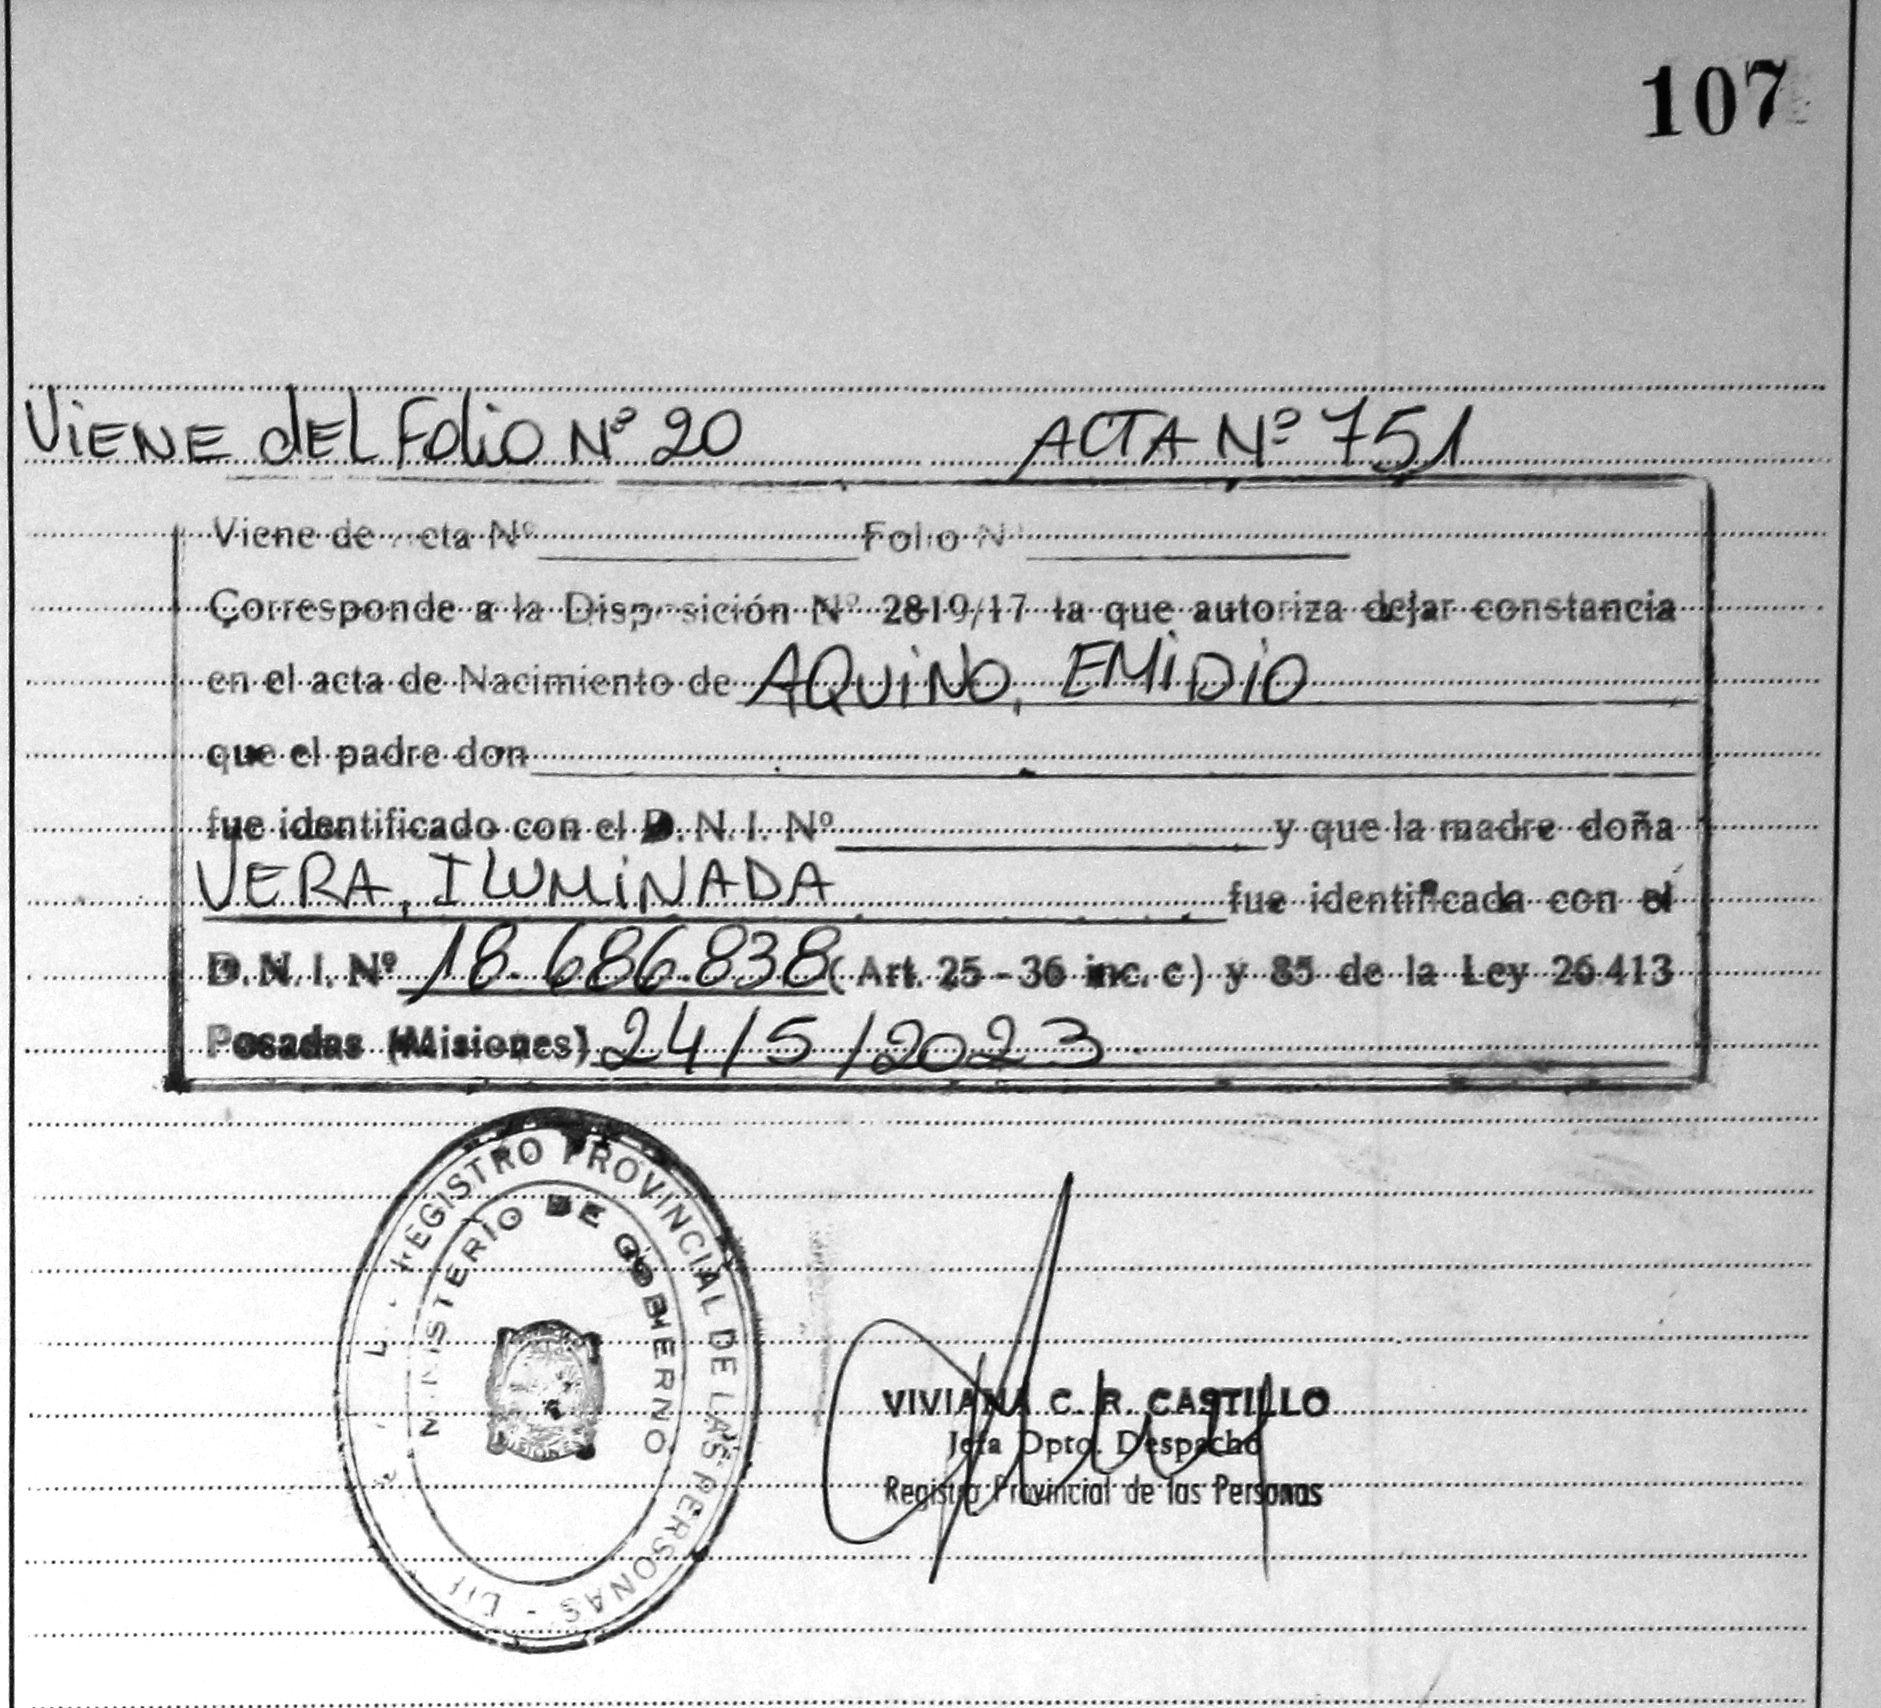 107
ViENE dEL FoLiO Nº 20 ACTA Nº 751
Viene de cta Nº Folio N
Corresponde a la Disposición Nº 2819/17 la que autoriza dejar constancia
en el acta de Nacimiento de AQUiNO, EMiDiO
que el padre don
fue identificado con el D. N. I. Nº y que la madre doña
VERA, ILUMiNADA fue identificada con el
D. N. I. Nº 18.686.838 ( Art. 25 - 36 inc. c ) y 85 de la Ley 26.413
Posadas (Misiones) 24/5/2023
REGISTRO PROVINCIAL DE LAS PERSONAS
MINISTERIO DE GOBIERNO
VIVIANA C. R. CASTILLO
Jefa Dpto. Despacho
Registro Provincial de las Personas